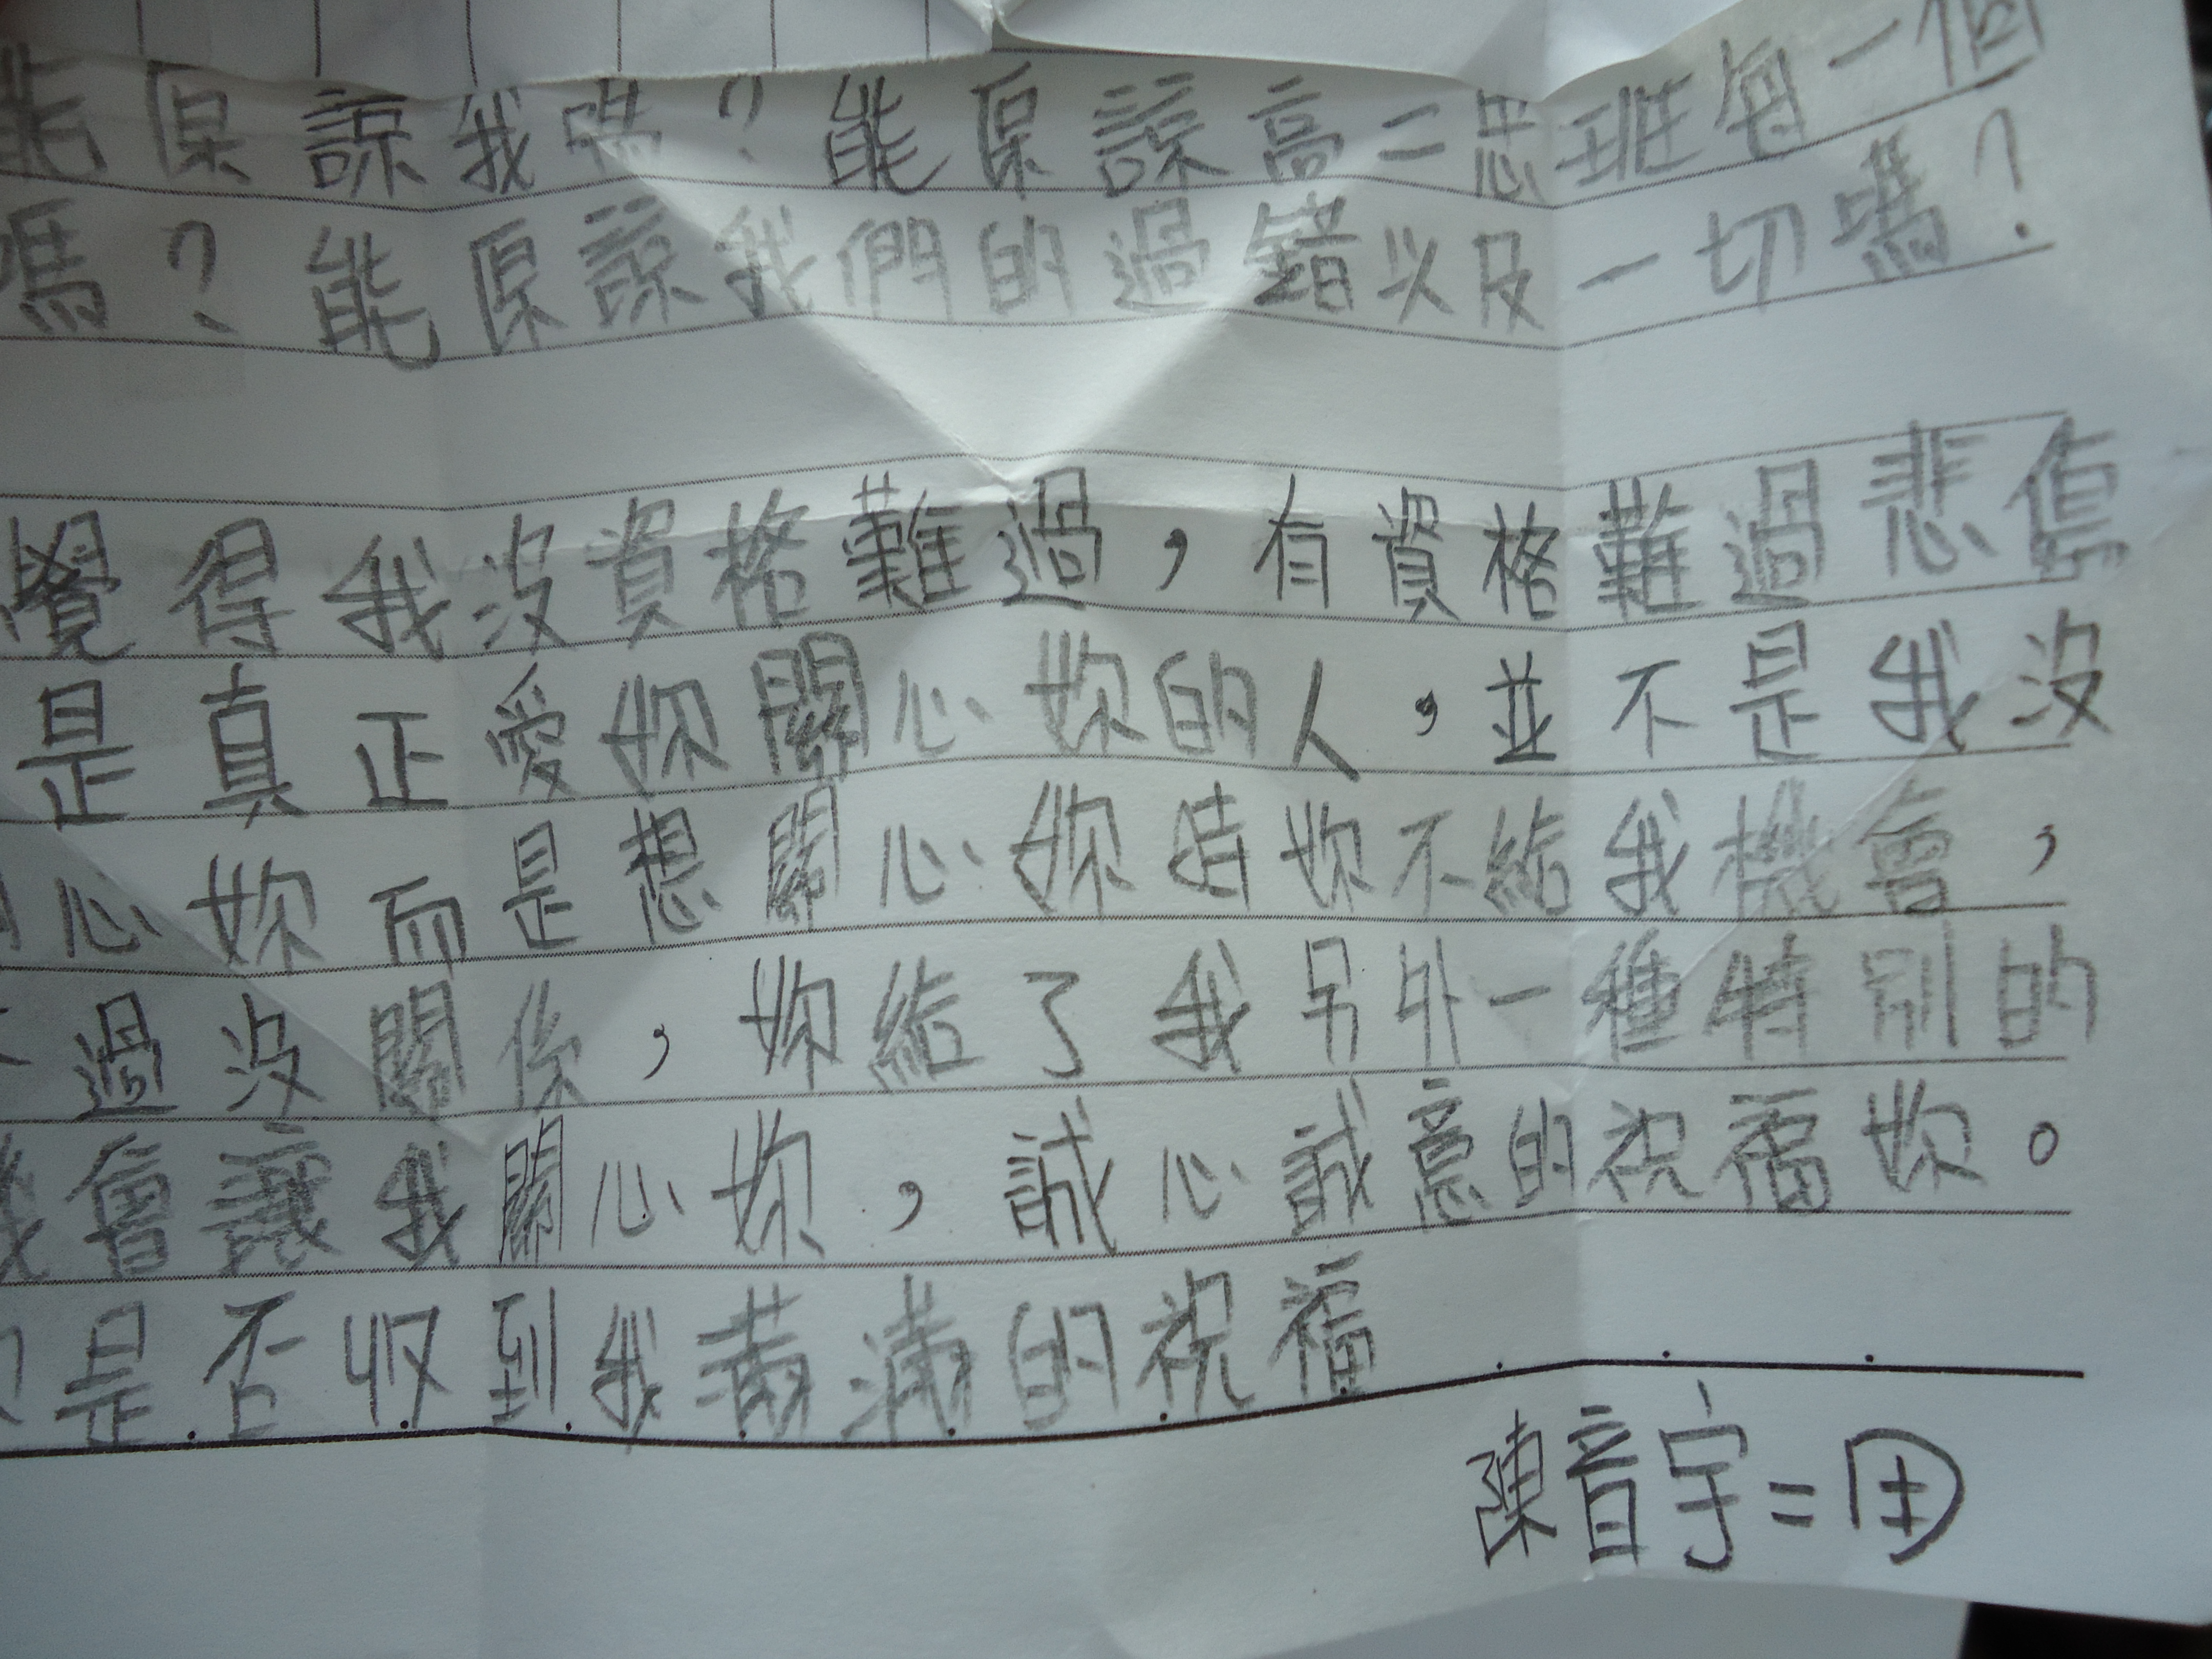 能原諒我嗎？能原諒高二忠班每一個
嗎？能原諒我們的過錯以及一切嗎？
覺得我沒資格難過，有資格難過悲傷
是真正愛妳關心妳的人，並不是我沒
心妳而是想關心妳時妳不給我機會，
過沒關係，妳給了我另外一種特別的
機會讓我關心妳，誠心誠意的祝福妳。
是否收到我滿滿的祝福
陳音宇=田